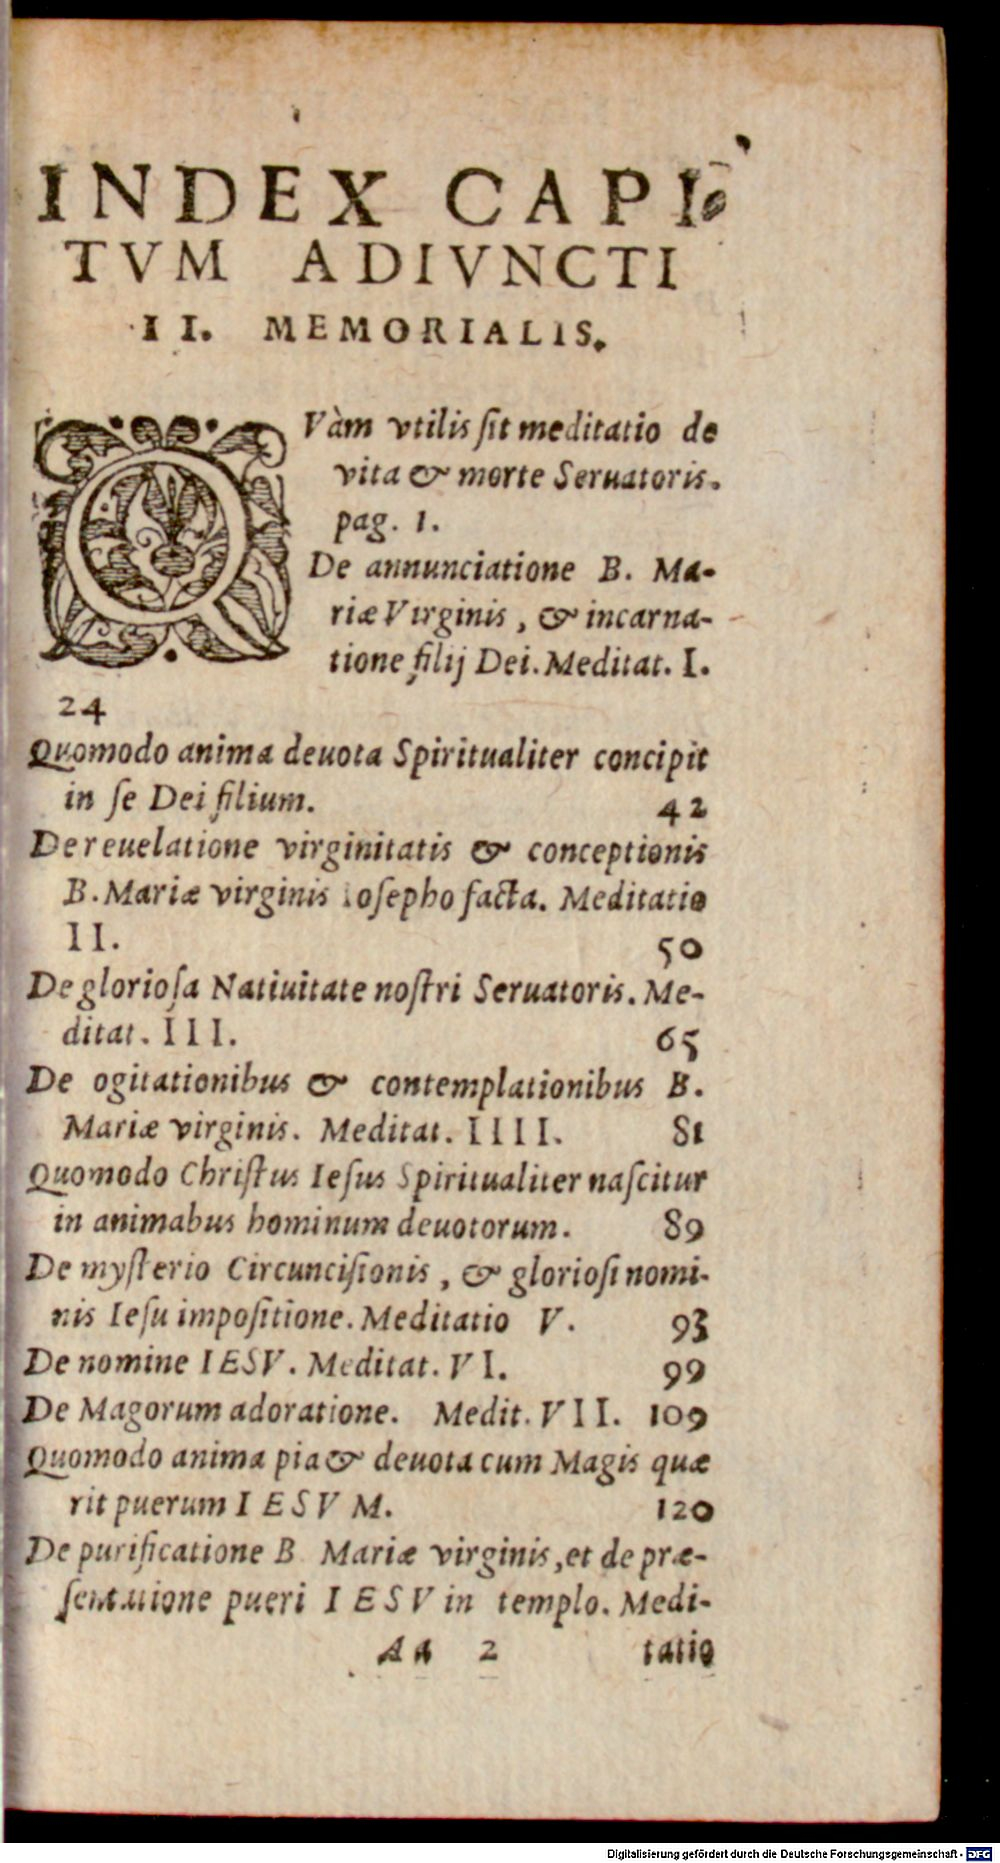 INDEX CAPI-
TVM ADIVNCTI
II. MEMORIALIS.
QVàm vtilis ſit meditatio de
vita & morte Seruatoris.
pag. 1.
De annunciatione B. Ma-
riæ Virginis, & incarna-
tione filij Dei. Meditat. I.
24
Quomodo anima deuota Spiritualiter concipit
in ſe Dei filium. 42
De reuelatione virginitatis & conceptionis
B. Mariæ virginis Ioſepho facta. Meditatio
II. 50
De glorioſa Natiuitate noſtri Seruatoris. Me-
ditat. III. 65
De ogitationibus & contemplationibus B.
Mariæ virginis. Meditat. IIII. 81
Quomodo Chriſtus Ieſus Spiritualiter naſcitur
in animabus hominum deuotorum. 89
De myſterio Circunciſionis, & glorioſi nomi-
nis Ieſu impoſitione. Meditatio V. 93
De nomine IESV. Meditat. VI. 99
De Magorum adoratione. Medit. VII. 109
Quomodo anima pia & deuota cum Magis quæ
rit puerum IESVM. 120
De purificatione B Mariæ virginis, et de præ-
ſentatione pueri IESV in templo. Medi-
Aa 2 tatio
Digitalisierung gefördert durch die Deutsche Forschungsgemeinschaft - DFG